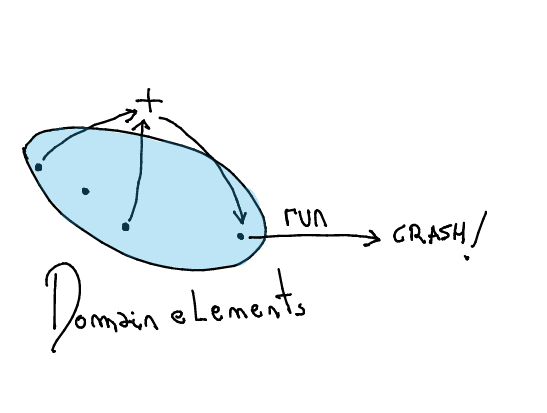 +
run
CRASH!
Domain elements